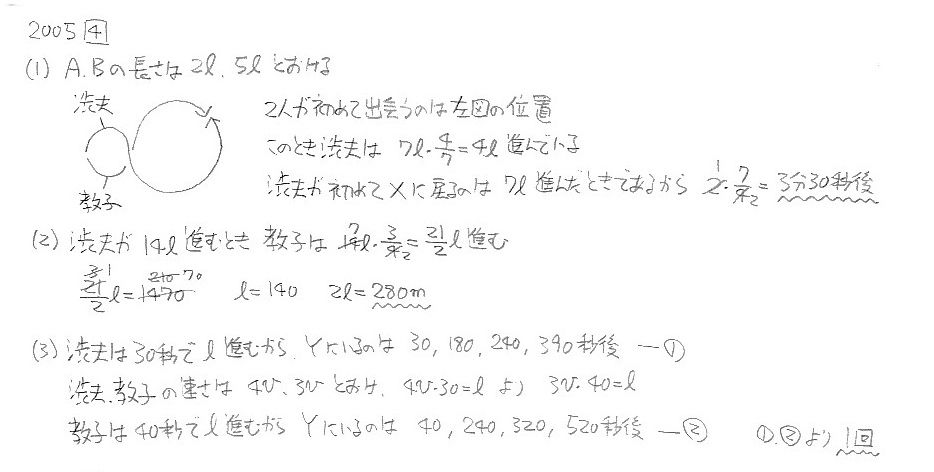 2005 4
(1) A.Bの長さは2l, 5lとおける
渋夫
教子
2人が初めて出会うのは左図の位置
このとき渋夫は 7l・4/7=4l進んでいる
渋夫が初めてXに戻るのは 7l進んだときであるから 2・7/4=3分30秒後
(2) 渋夫が14l進むとき 教子は14l・3/4=21/2 l進む
21/2 l=1470 l=140 2l=280m
(3) 渋夫は30秒でl進むから、Yにいるのは 30, 180, 240, 390秒後 ―①
渋夫、教子の速さは 4v、3vとおけ、4v・30=lより 3v・40=l
教子は40秒でl進むから Yにいるのは 40, 240, 320, 520秒後 ―② ①②より1回